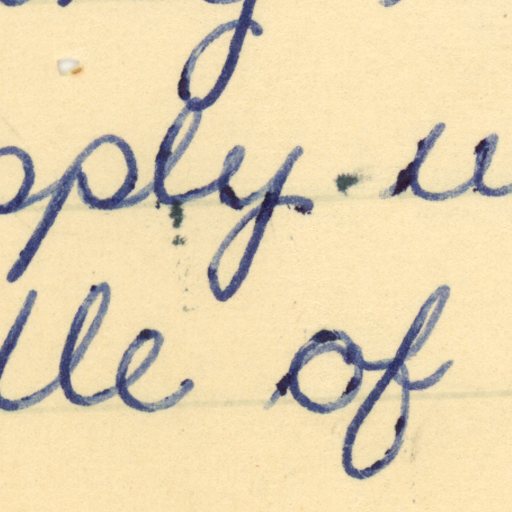 pply u
lle of